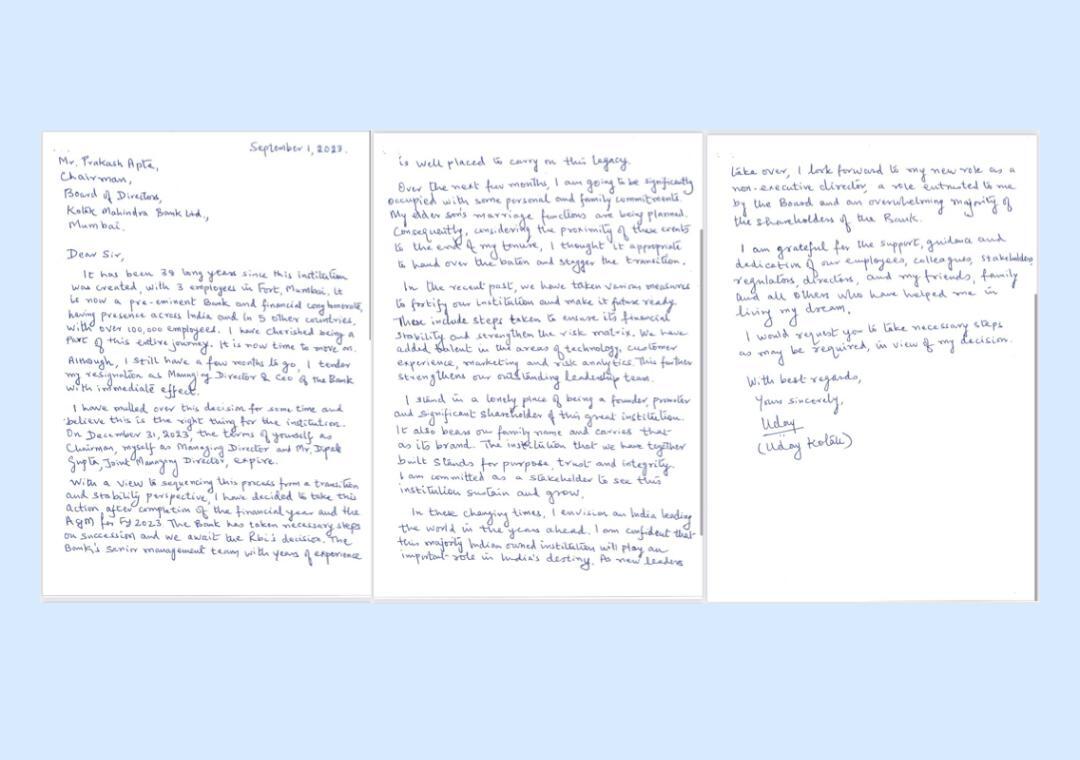 September 1, 2023.
Mr. Prakash Apte,
Chairman,
Board of Directors,
Kotak Mahindra Bank Ltd.,
Mumbai.
Dear Sir,
It has been 38 long years since this institution
was created, with 3 employees in Fort, Mumbai. It
is now a pre-eminent Bank and financial conglomerate,
having presence across India and in 5 other countries,
with over 100,000 employees. I have cherished being a
part of this entire journey. It is now time to move on.
Although, I still have a few months to go, I tender
my resignation as Managing Director & CEO of the Bank
with immediate effect.
I have mulled over this decision for some time and
believe this is the right thing for the institution.
On December 31, 2023, the terms of yourself as
Chairman, myself as Managing Director and Mr. Dipak
Gupta, Joint Managing Director, expire.
With a view to sequencing this process from a transition
and stability perspective, I have decided to take this
action, after completion of the financial year and the
AGM for FY 2023. The Bank has taken necessary steps
on succession and we await the RBI's decision. The
Bank's senior management team with years of experience
is well placed to carry on this legacy.
Over the next few months, I am going to be significantly
occupied with some personal and family commitments.
My elder son's marriage functions are being planned.
Consequently, considering the proximity of these events
to the end of my tenure, I thought it appropriate
to hand over the baton and stagger the transition.
In the recent past, we have taken various measures
to fortify our institution and make it future ready.
These include steps taken to ensure its financial
stability and strengthen the risk matrix. We have
added talent in the areas of technology, customer
experience, marketing and risk analytics. This further
strengthens our outstanding leadership team.
I stand in a lonely place of being a founder, promoter
and significant shareholder of this great institution.
It also bears our family name and carries that
as its brand. The institution that we have together
built stands for purpose, trust and integrity.
I am committed as a stakeholder to see this
institution sustain and grow.
In these changing times, I envision an India leading
the world in the years ahead. I am confident that
this majority Indian owned institution will play an
important role in India's destiny. As new leaders
take over, I look forward to my new role as a
non-executive director, a role entrusted to me
by the Board and an overwhelming majority of
the shareholders of the Bank.
I am grateful for the support, guidance and
dedication of our employees, colleagues, stakeholders,
regulators, directors, and my friends, family
and all others who have helped me in
living my dream.
I would request you to take necessary steps
as may be required, in view of my decision.
With best regards,
Yours sincerely,
Uday
(Uday Kotak)